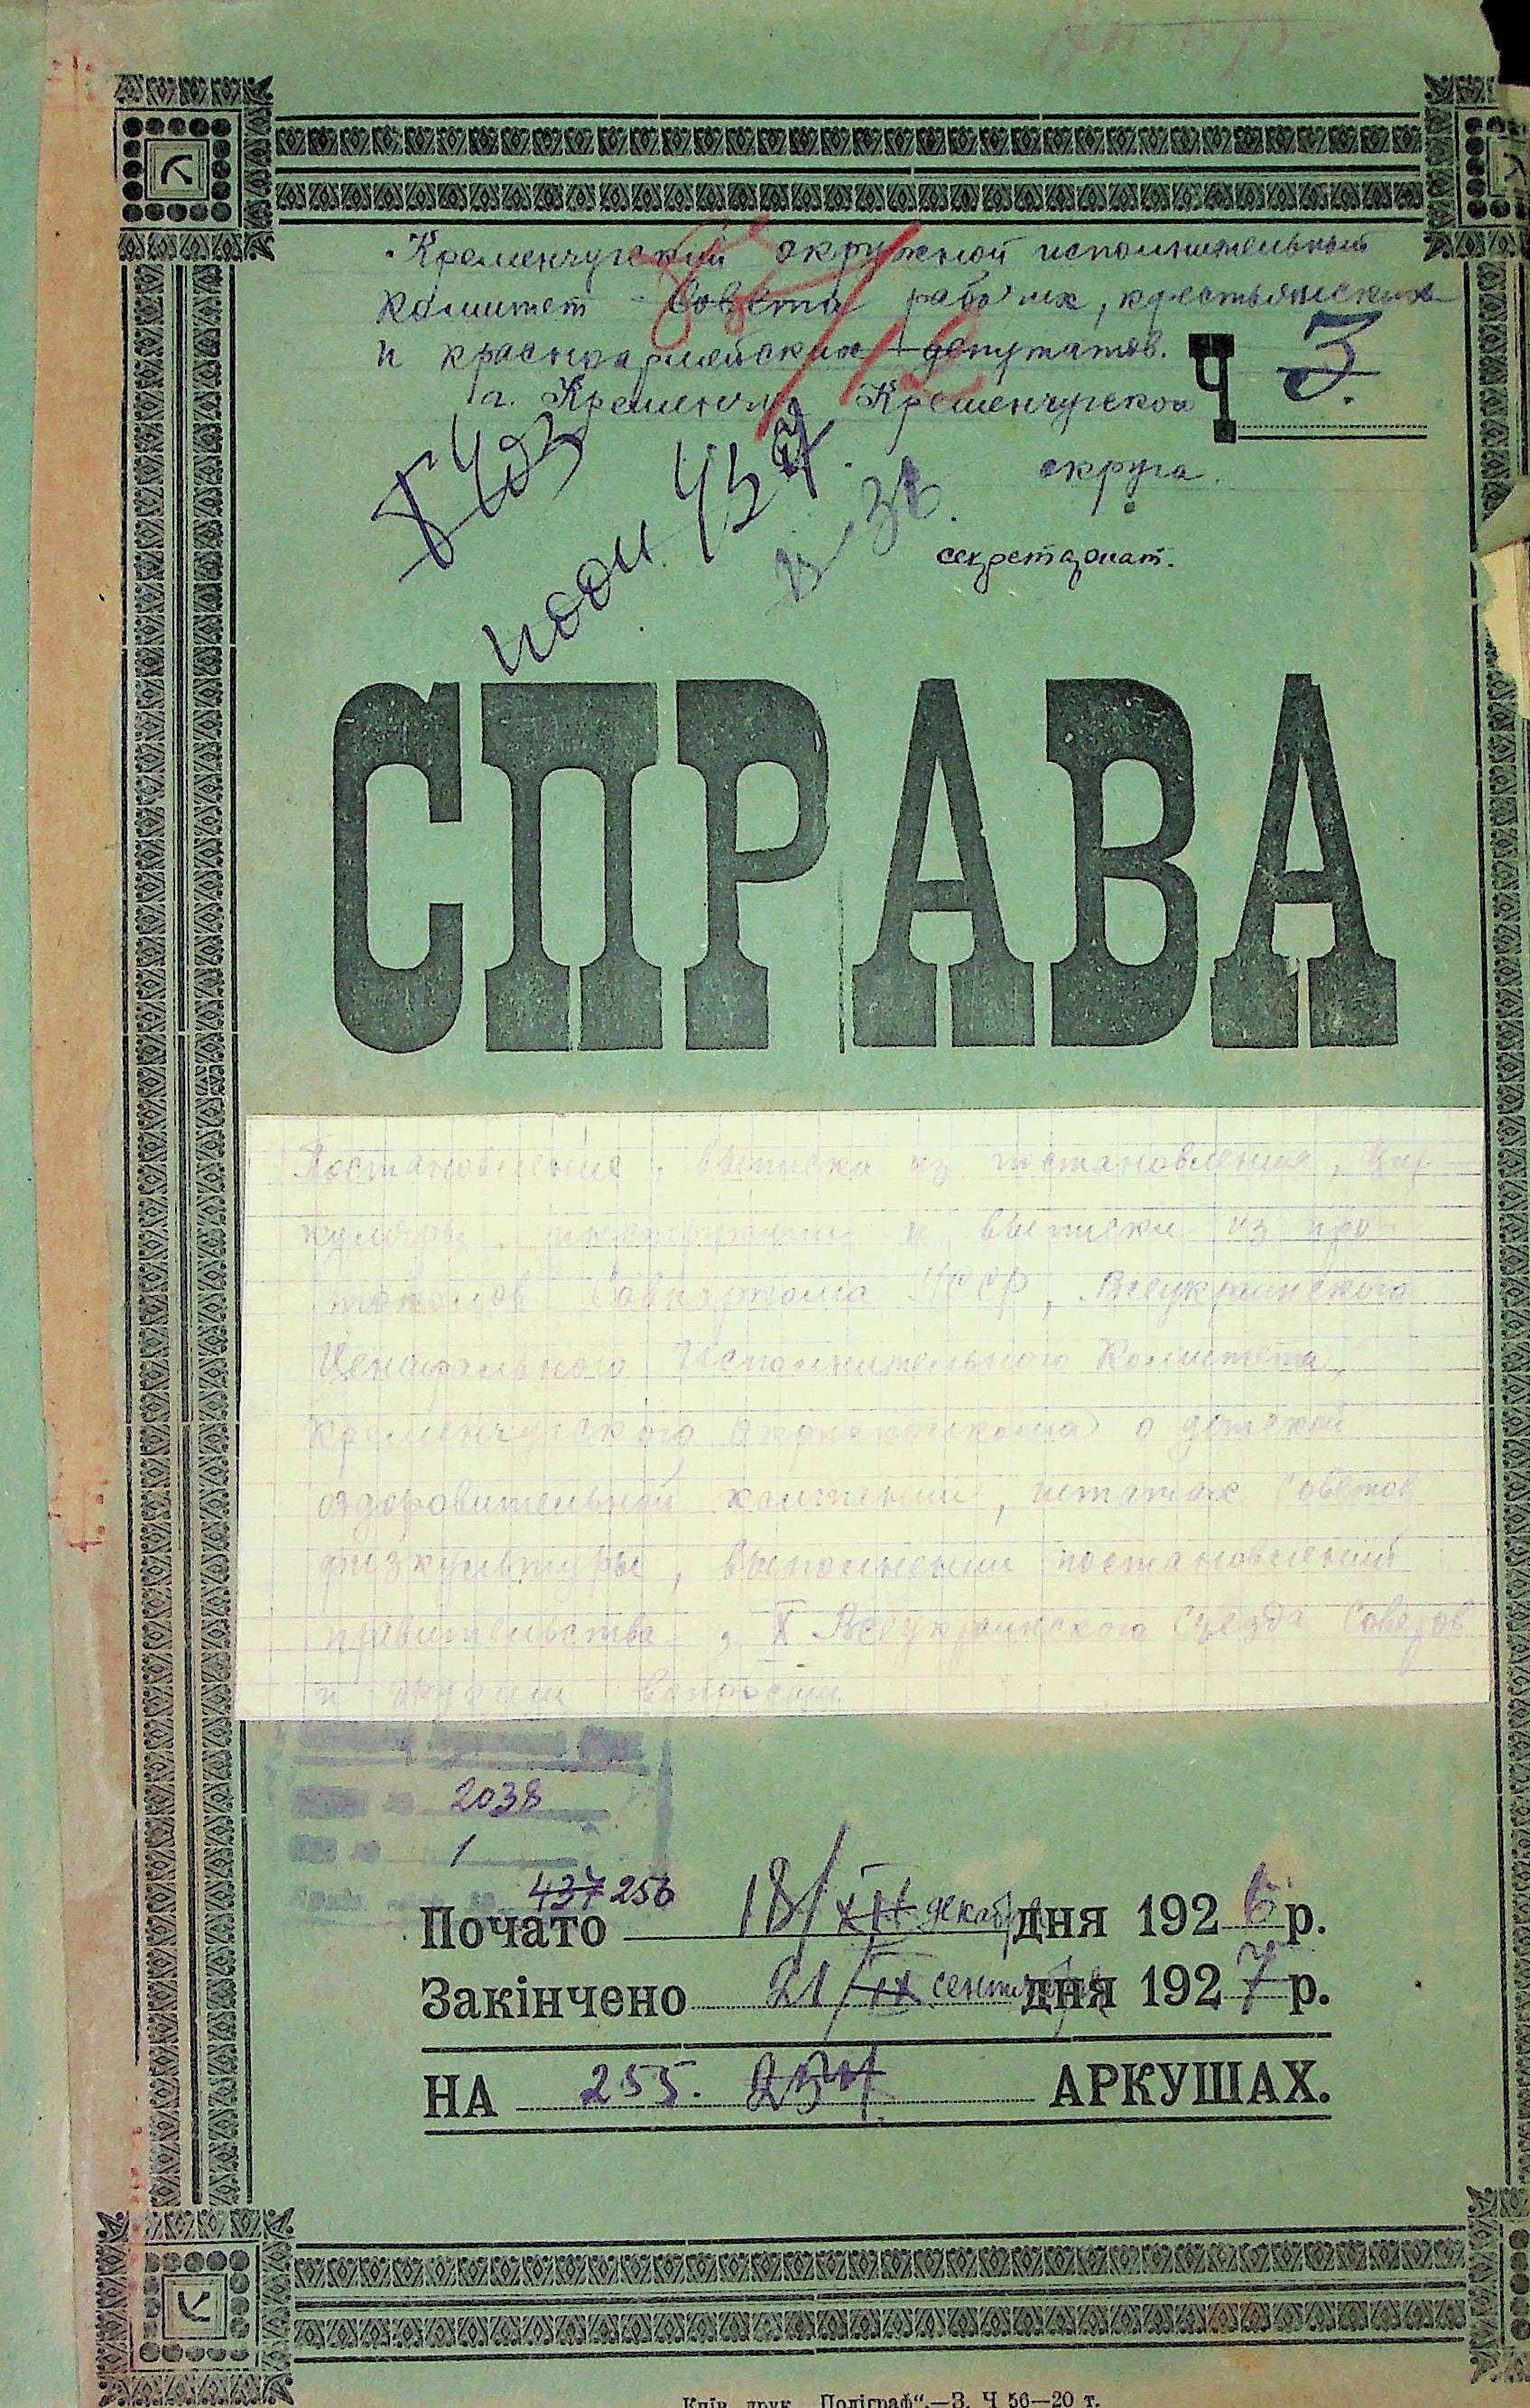 Кременчугский окружной исполнительный
комитет Совета рабочих, крестьянских
и красноармейских депутатов.
г. Кременчуг Кременчугской
округа.
Ч 3.
секретариат.
СПРАВА
Постановление, выписка из постановления, цир-
куляры, инструкции и выписки из про-
токолов Совнаркома УССР, Всеукраинского
Центрального Исполнительного Комитета,
Кременчугского окрисполкома о детской
оздоровительной кампании, штатах советов
физкультуры, выполнении постановлений
правительства, X Всеукраинского съезда Советов
и другим вопросам.
2038
1
437 256
Почато 18/XII декабря дня 1926 р.
Закінчено 21/IX сентября дня 1927 р.
НА 255. 254 АРКУШАХ.
Київ, друк. „Поліграф“.—З. Ч 56—20 т.